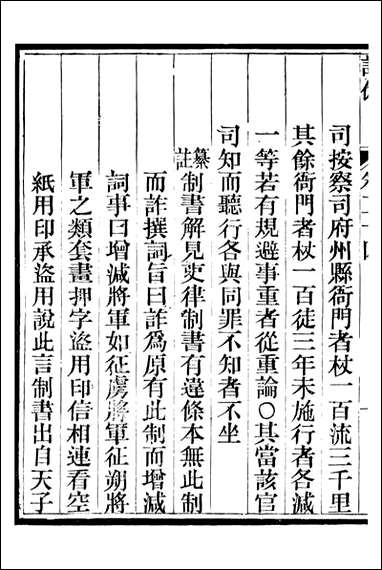 司按察司府州縣衙門者杖一百流三千里
其餘衙門者杖一百徒三年未施行者各減
一等若有規避事重者從重論○其當該官
司知而聽行各與同罪不知者不坐
纂註制書解見吏律制書有違條本無此制
而詐撰詞旨曰詐為原有此制而增減
詞事曰增減將軍如征虜將軍征朔將
軍之類套畫押字盜用印信相連看空
紙用印承盜用說此言制書出自天子